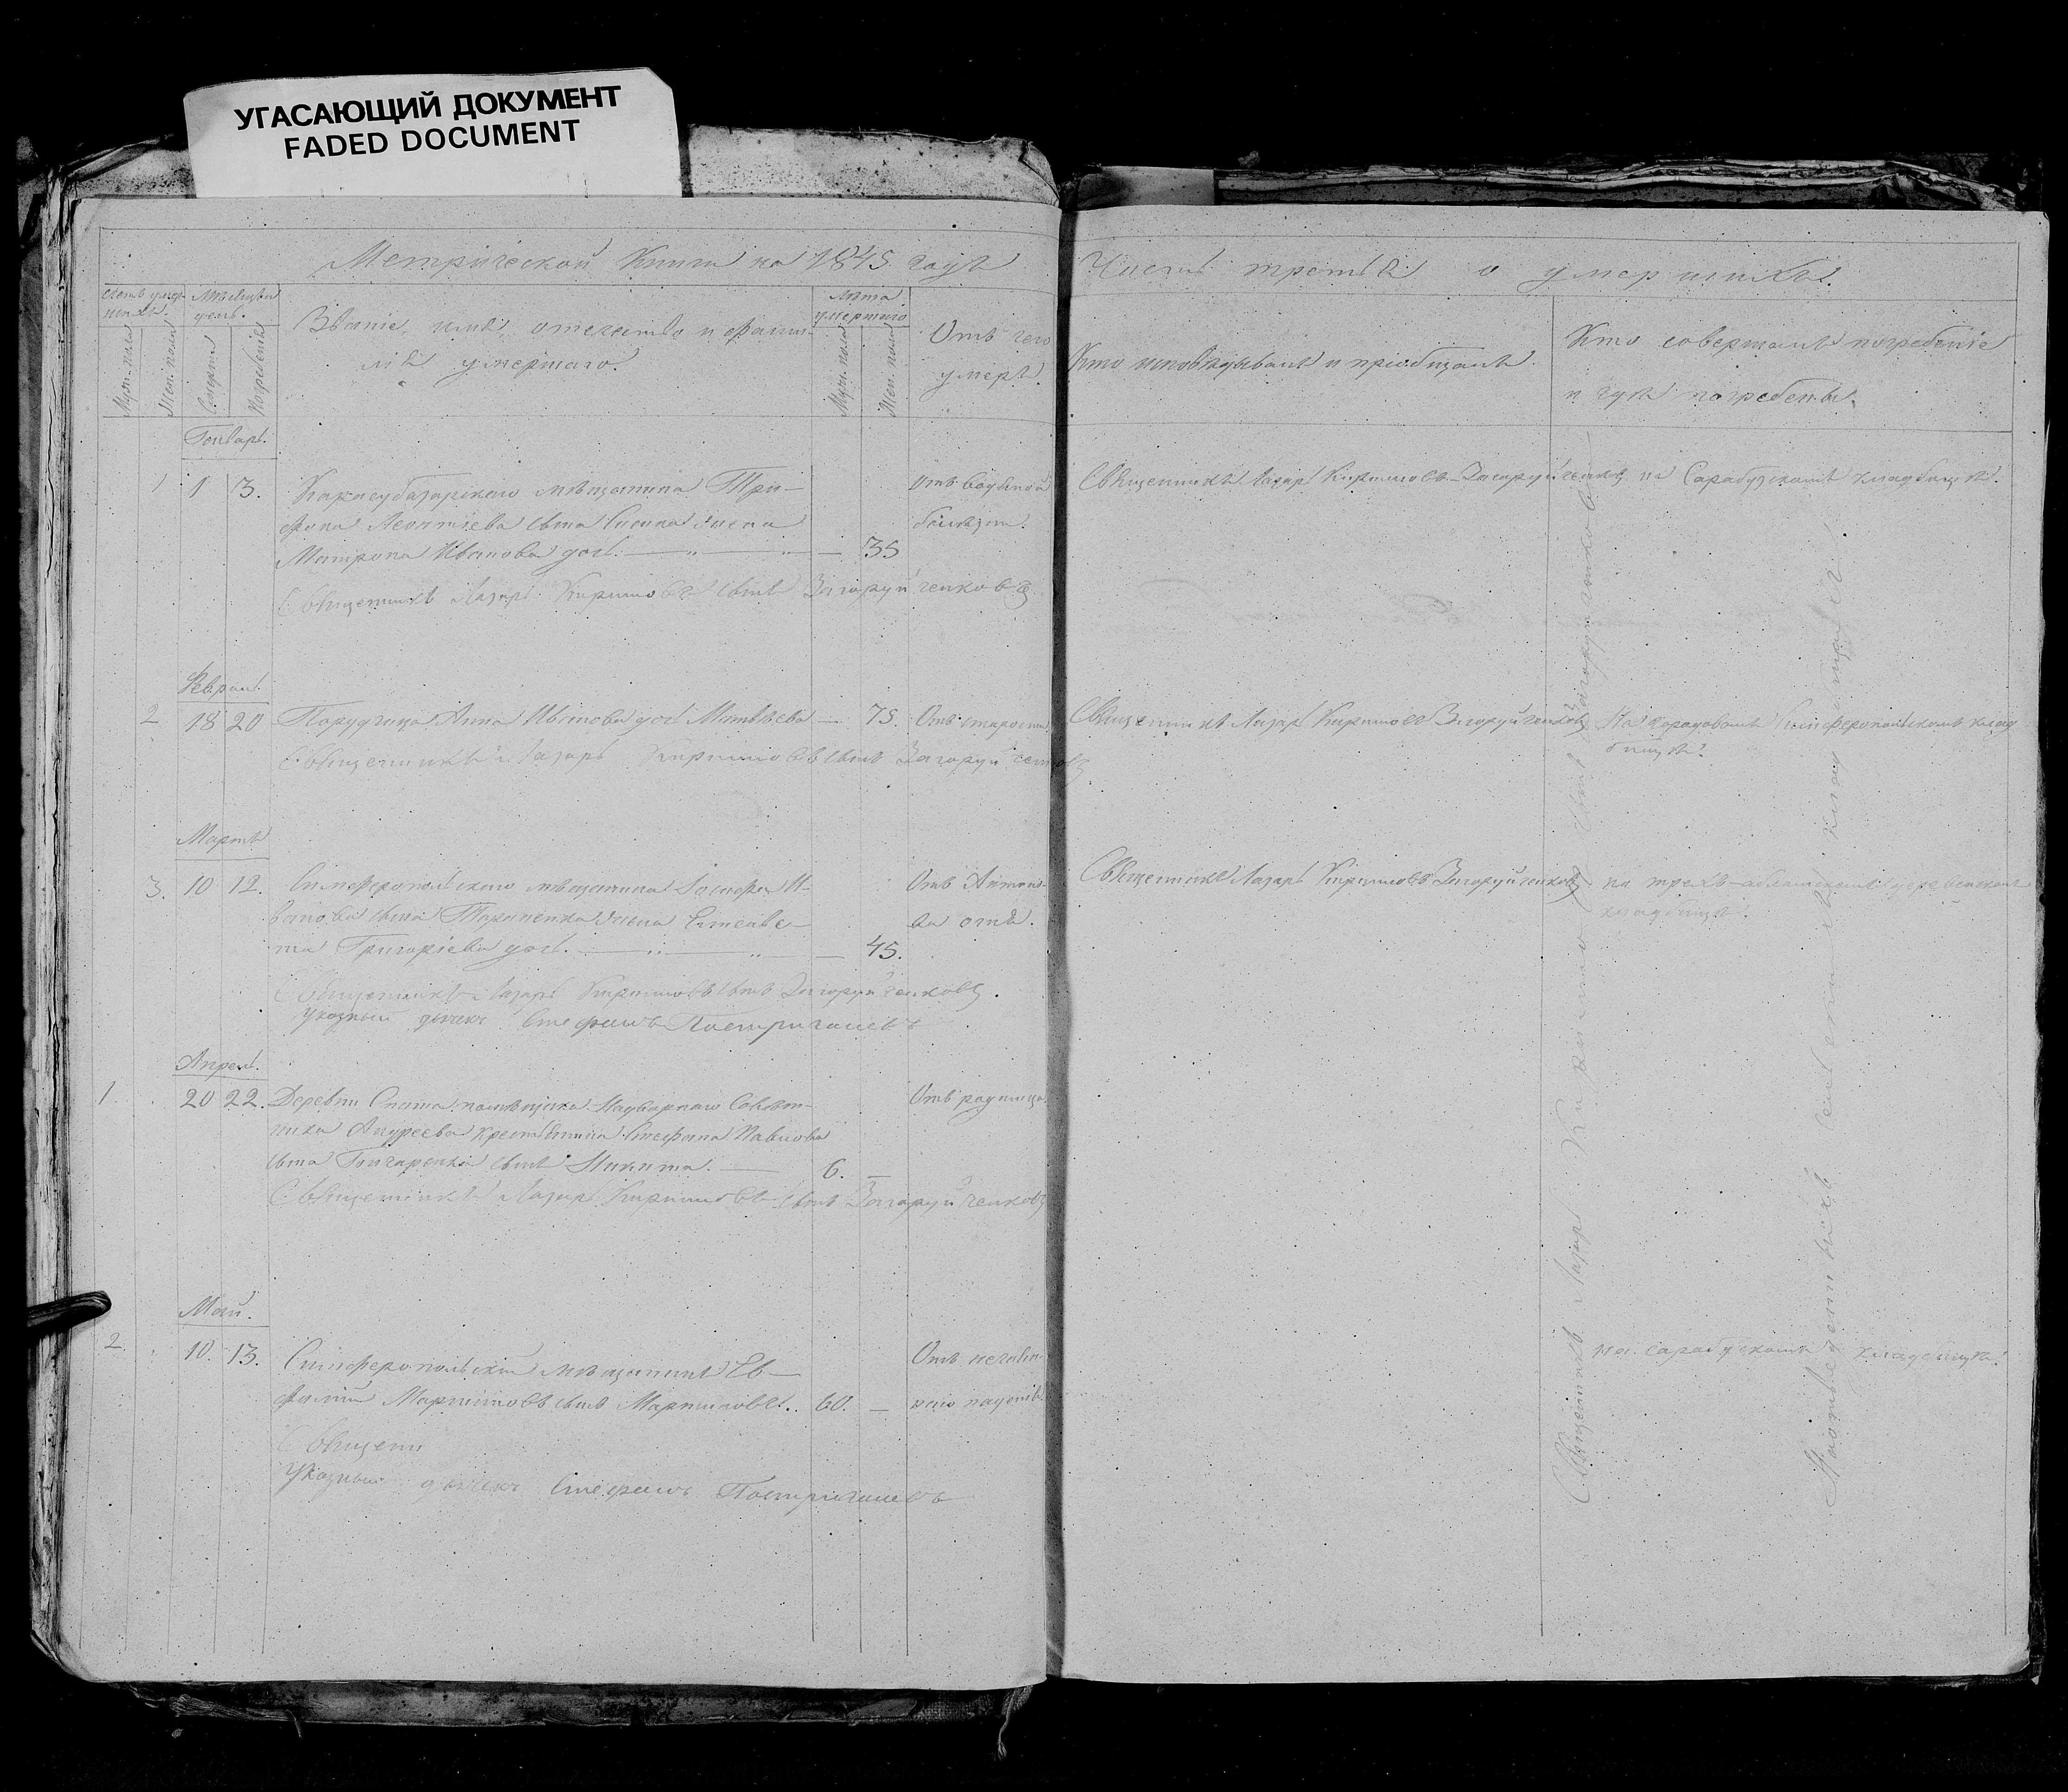 УГАСАЮЩИЙ ДОКУМЕНТ
FADED DOCUMENT
Метрической Книги на 1845 годъ
Часть третья о умершихъ.
Счетъ умершихъ.
Мѣсяцъ и день.
Муж. пола
Жен. пола
Смерти
Погребенія
Званіе, имя, отечество и фами-
лія умершаго.
Лѣта
умершаго
Муж. пола
Жен. пола
Отъ чего
умеръ.
Кто исповѣдывалъ и пріобщалъ
Кто совершалъ погребеніе
и гдѣ погребены.
Генварь.
1 1 3. Карасубазарскаго мѣщанина Три-
фона Леонтіева сына жена
Матрона Иванова дочь. — 35
Отъ водяной
болѣзни.
Священникъ Лазарь Кирилловъ Загоруйченковъ
на Сарабузскомъ кладбищѣ.
Священникъ Лазарь Кирилловъ сынъ Загоруйченковъ
Феврал.
2 18 20 Порудчица Анна Иванова дочь Матвѣева — 75. Отъ старости
Священникъ Лазарь Кирилловъ Загоруйченковъ
На городовомъ Симферопольскомъ клад
бищѣ.
Священникъ Лазарь Кирилловъ сынъ Загоруйченковъ
Мартъ
3. 10 12. Симферопольскаго мѣщанина Іосифа И-
ванова сына Тараненка жена Елисаве-
та Григоріева дочь. — 45.
Отъ Антоно-
ва огня.
Священникъ Лазарь Кирилловъ Загоруйченковъ
на трехъ-абламскомъ деревенскомъ
кладбищѣ.
Священникъ Лазарь Кирилловъ сынъ Загоруйченковъ.
Указный дьячекъ Стефанъ
Апрел.
1. 20 22. Деревни Спата помѣщика Надворнаго Совѣт-
ника Андреева крестьянина Стефана Павлова
сына Гончаренка сынъ Никита. — 6. —
Отъ родимца
Священникъ Лазарь Кирилловъ сынъ Загоруйченковъ
Май.
2. 10. 13. Симферопольскій мѣщанинъ Ев-
фимій Мартиновъ сынъ Мартиновъ. 60. —
Отъ нечаян-
наго
на сарабузскомъ кладбищѣ.
Священни
Указный дьячекъ Стефанъ
Священникъ Лазарь Кирилловъ сынъ Загоруйченковъ